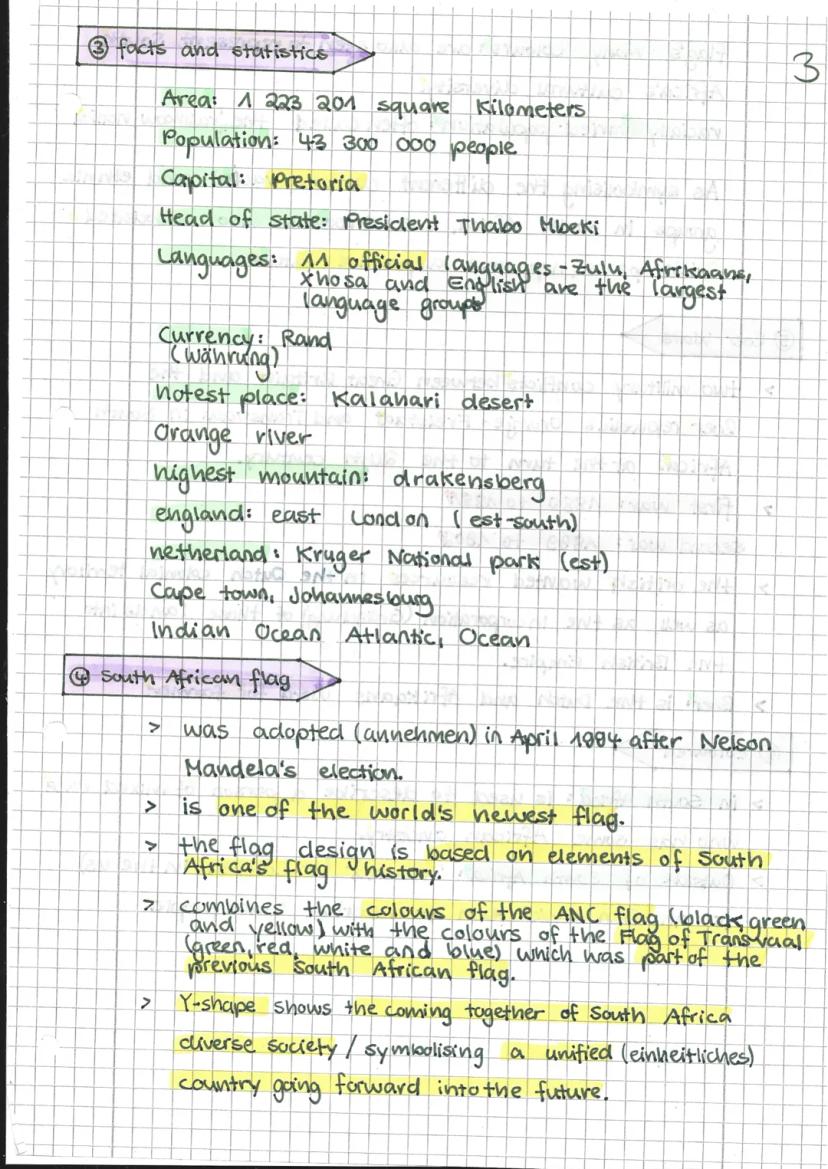 ③ facts and statistics
3
Area: 1 223 201 square Kilometers
Population: 43 300 000 people
Capital: Pretoria
Head of state: President Thabo Mbeki
Languages: 11 official languages - Zulu, Afrikaans,
Xhosa and English are the largest
language group
Currency: Rand
(Währung)
hotest place: Kalahari desert
Orange river
highest mountain: drakensberg
england: east London (est-south)
netherland: Kruger National park (est)
Cape town, Johannesburg
Indian Ocean Atlantic, Ocean
④ South African flag
> was adopted (annehmen) in April 1994 after Nelson
Mandela's election.
> is one of the world's newest flag.
> the flag design is based on elements of South
Africa's flag history.
> combines the colours of the ANC flag (black, green
and yellow) with the colours of the Flag of Transvaal
(green, red, white and blue) which was part of the
previous South African flag.
> Y-shape shows the coming together of South Africa
diverse society / symbolising a unified (einheitliches)
country going forward into the future.